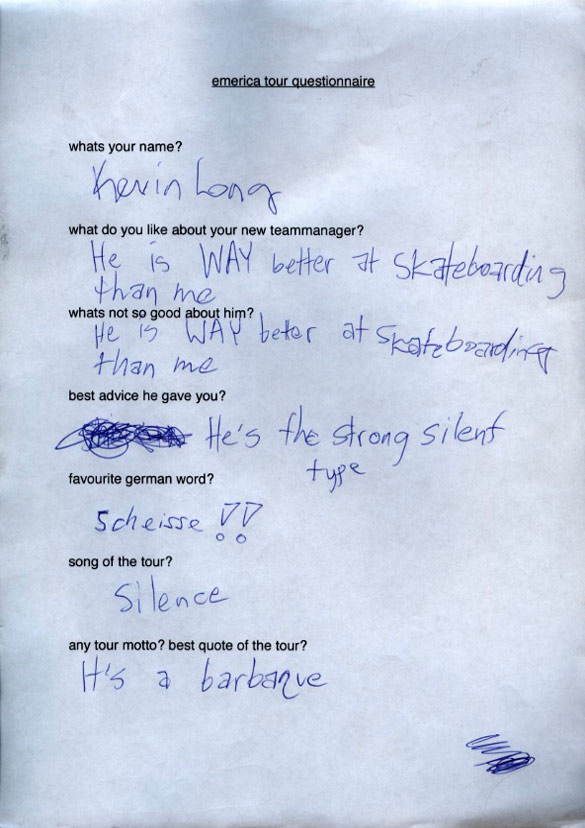 emerica tour questionnaire
whats your name?
Kevin Long
what do you like about your new teammanager?
He is WAY better at skateboarding
than me
whats not so good about him?
He is WAY beter at skateboarding
than me
best advice he gave you?
He's the strong silent
type
favourite german word?
Scheisse !!
song of the tour?
Silence
any tour motto? best quote of the tour?
It's a barbaque